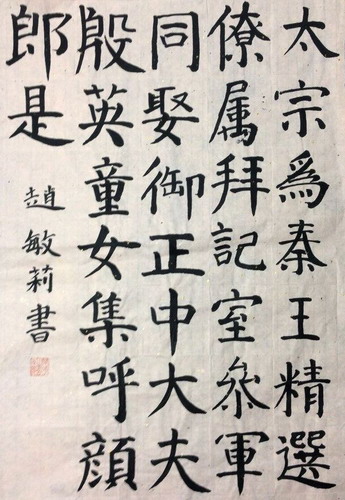 太宗為秦王精選
僚属拜記室參軍
同娶御正中大夫
殷英童女集呼顏
郎是
趙敏莉書